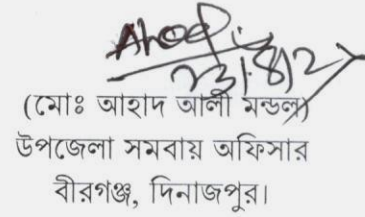 23/8/2
(মোঃ আহাদ আলী মন্ডল)
উপজেলা সমবায় অফিসার
বীরগঞ্জ, দিনাজপুর।